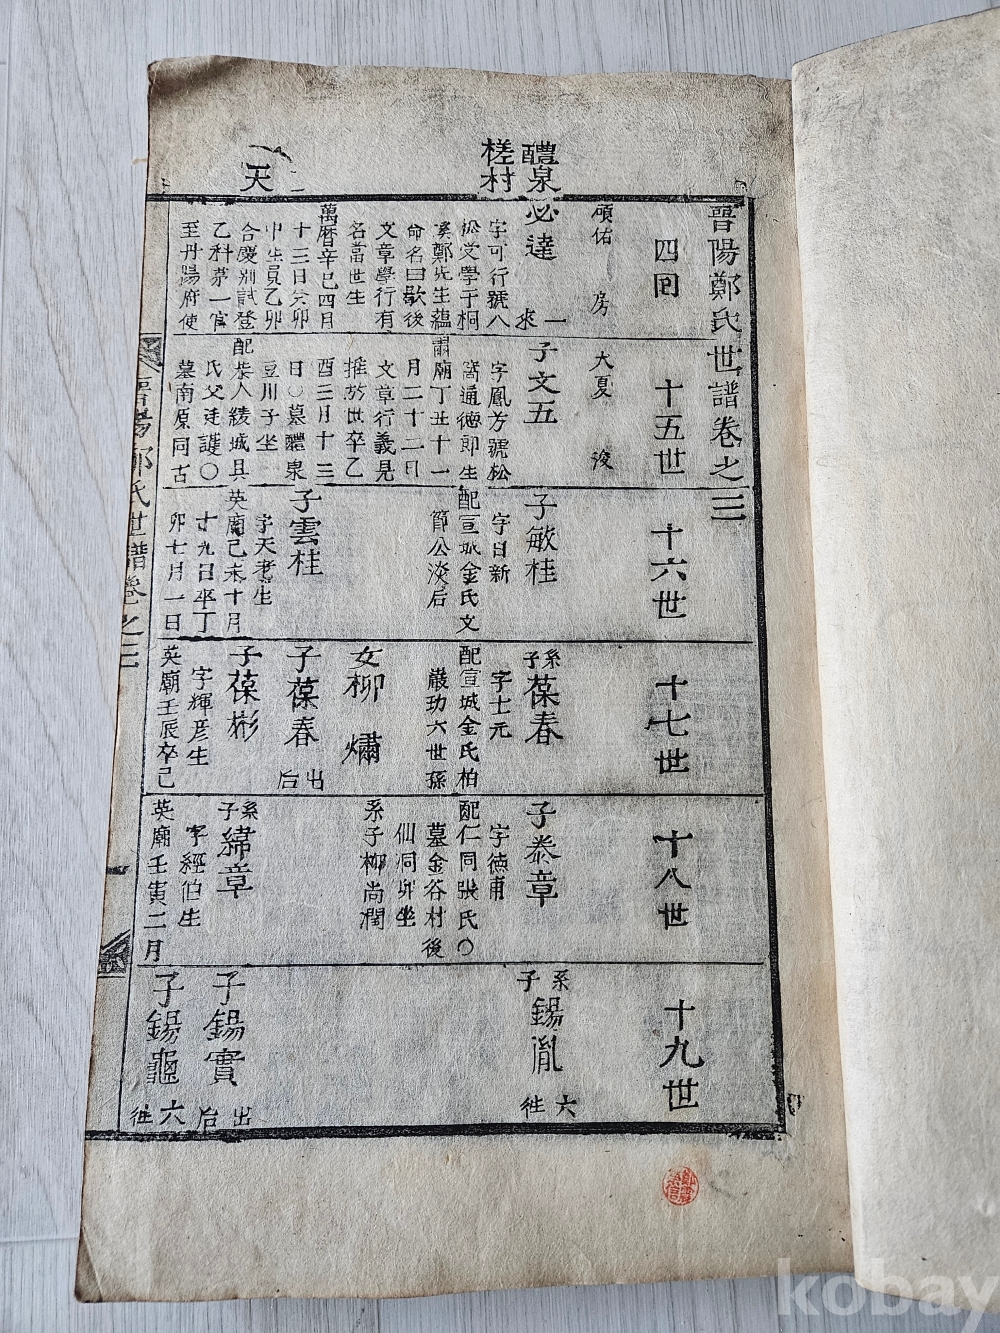 晉陽鄭氏世譜卷之三
醴泉
槎村
天
四囘
碩佑 房
必達
一來
字可行號八
松受學于桐
溪鄭先生蘊
命名曰歇後
文章學行有
名當世生
萬曆辛巳四月
十三日癸卯
中生員乙卯
合慶別試登
乙科第一官
至丹陽府使
十五世
大夏 浚
子文五
字鳳方號松
窩通德郎生
肅廟丁丑十一
月二十二日
文章行義見
推於世卒乙
酉三月十三
日○墓醴泉
豆川子坐
配柴人綾城具
氏父廷謹○
墓南原同古
十六世
子敏桂
字日新
配宣城金氏文
節公淡后
子雲桂
字天老生
英廟己未十月
十九日卒丁
卯七月一日
十七世
系子葆春
字士元
配宣城金氏柏
巖玏六世孫
女柳 㶅
子葆春
出后
子葆彬
字輝彦生
英廟壬辰卒己
十八世
子泰章
字德甫
配仁同張氏○
墓金谷村後
仙洞卯坐
系子柳尚潤
系子緯章
字經伯生
英廟壬寅二月
十九世
系子錫胤
六徃
子錫實
出后
子錫龜
六徃
晉陽鄭氏世譜卷之三
kobay